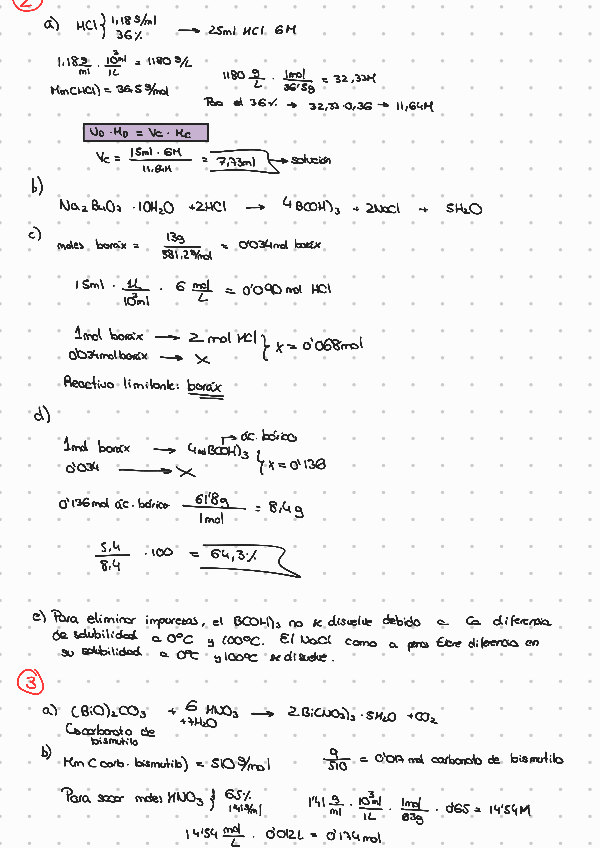 2
a) HCl } 1,18 g/ml → 25ml HCl 6M
36%
1,18 g/ml · 10³ml/1L = 1180 g/L
1180 g/L · 1mol/36'5g = 32,33M
Mm(HCl) = 36,5 g/mol
Para el 36% → 32,33·0,36 → 11,64M
V_D · M_D = V_C · M_C
V_C = 15ml · 6M / 11,64M = 7,73ml → solución
b)
Na₂B₄O₇ · 10H₂O + 2HCl → 4B(OH)₃ + 2NaCl + 5H₂O
c)
moles borax = 13g / 381,2g/mol = 0'034mol borax
15ml · 1L/10³ml · 6 mol/L = 0'090 mol HCl
1mol borax → 2 mol HCl } x = 0'068mol
0'034molborax → x
Reactivo limitante: borax
d)
→ ác. bórico
1mol borax → 4molB(OH)₃ } x = 0'136
0'034 → x
0'136mol ác. bórico 61'8g/1mol = 8,4g
5,4/8,4 · 100 = 64,3%
e) Para eliminar impurezas, el B(OH)₃ no se disuelve debido a la diferencia
de solubilidad a 0ºC y 100ºC. El NaCl como a penas tiene diferencia en
su solubilidad a 0ºC y 100ºC se disuelve.
3
a) (BiO)₂CO₃ + 6 HNO₃ → 2Bi(NO₃)₃ · 5H₂O + CO₂
+7H₂O
carbonato de
bismutilo
b) Mm (carb. bismutilo) = 510 g/mol
9/510 = 0'017 mol carbonato de bismutilo
Para sacar moles HNO₃ } 65%
1'41g/ml
1'41 g/ml · 10³ml/1L · 1mol/63g · 0'65 = 14'54M
14'54 mol/L · 0'012L = 0'174mol